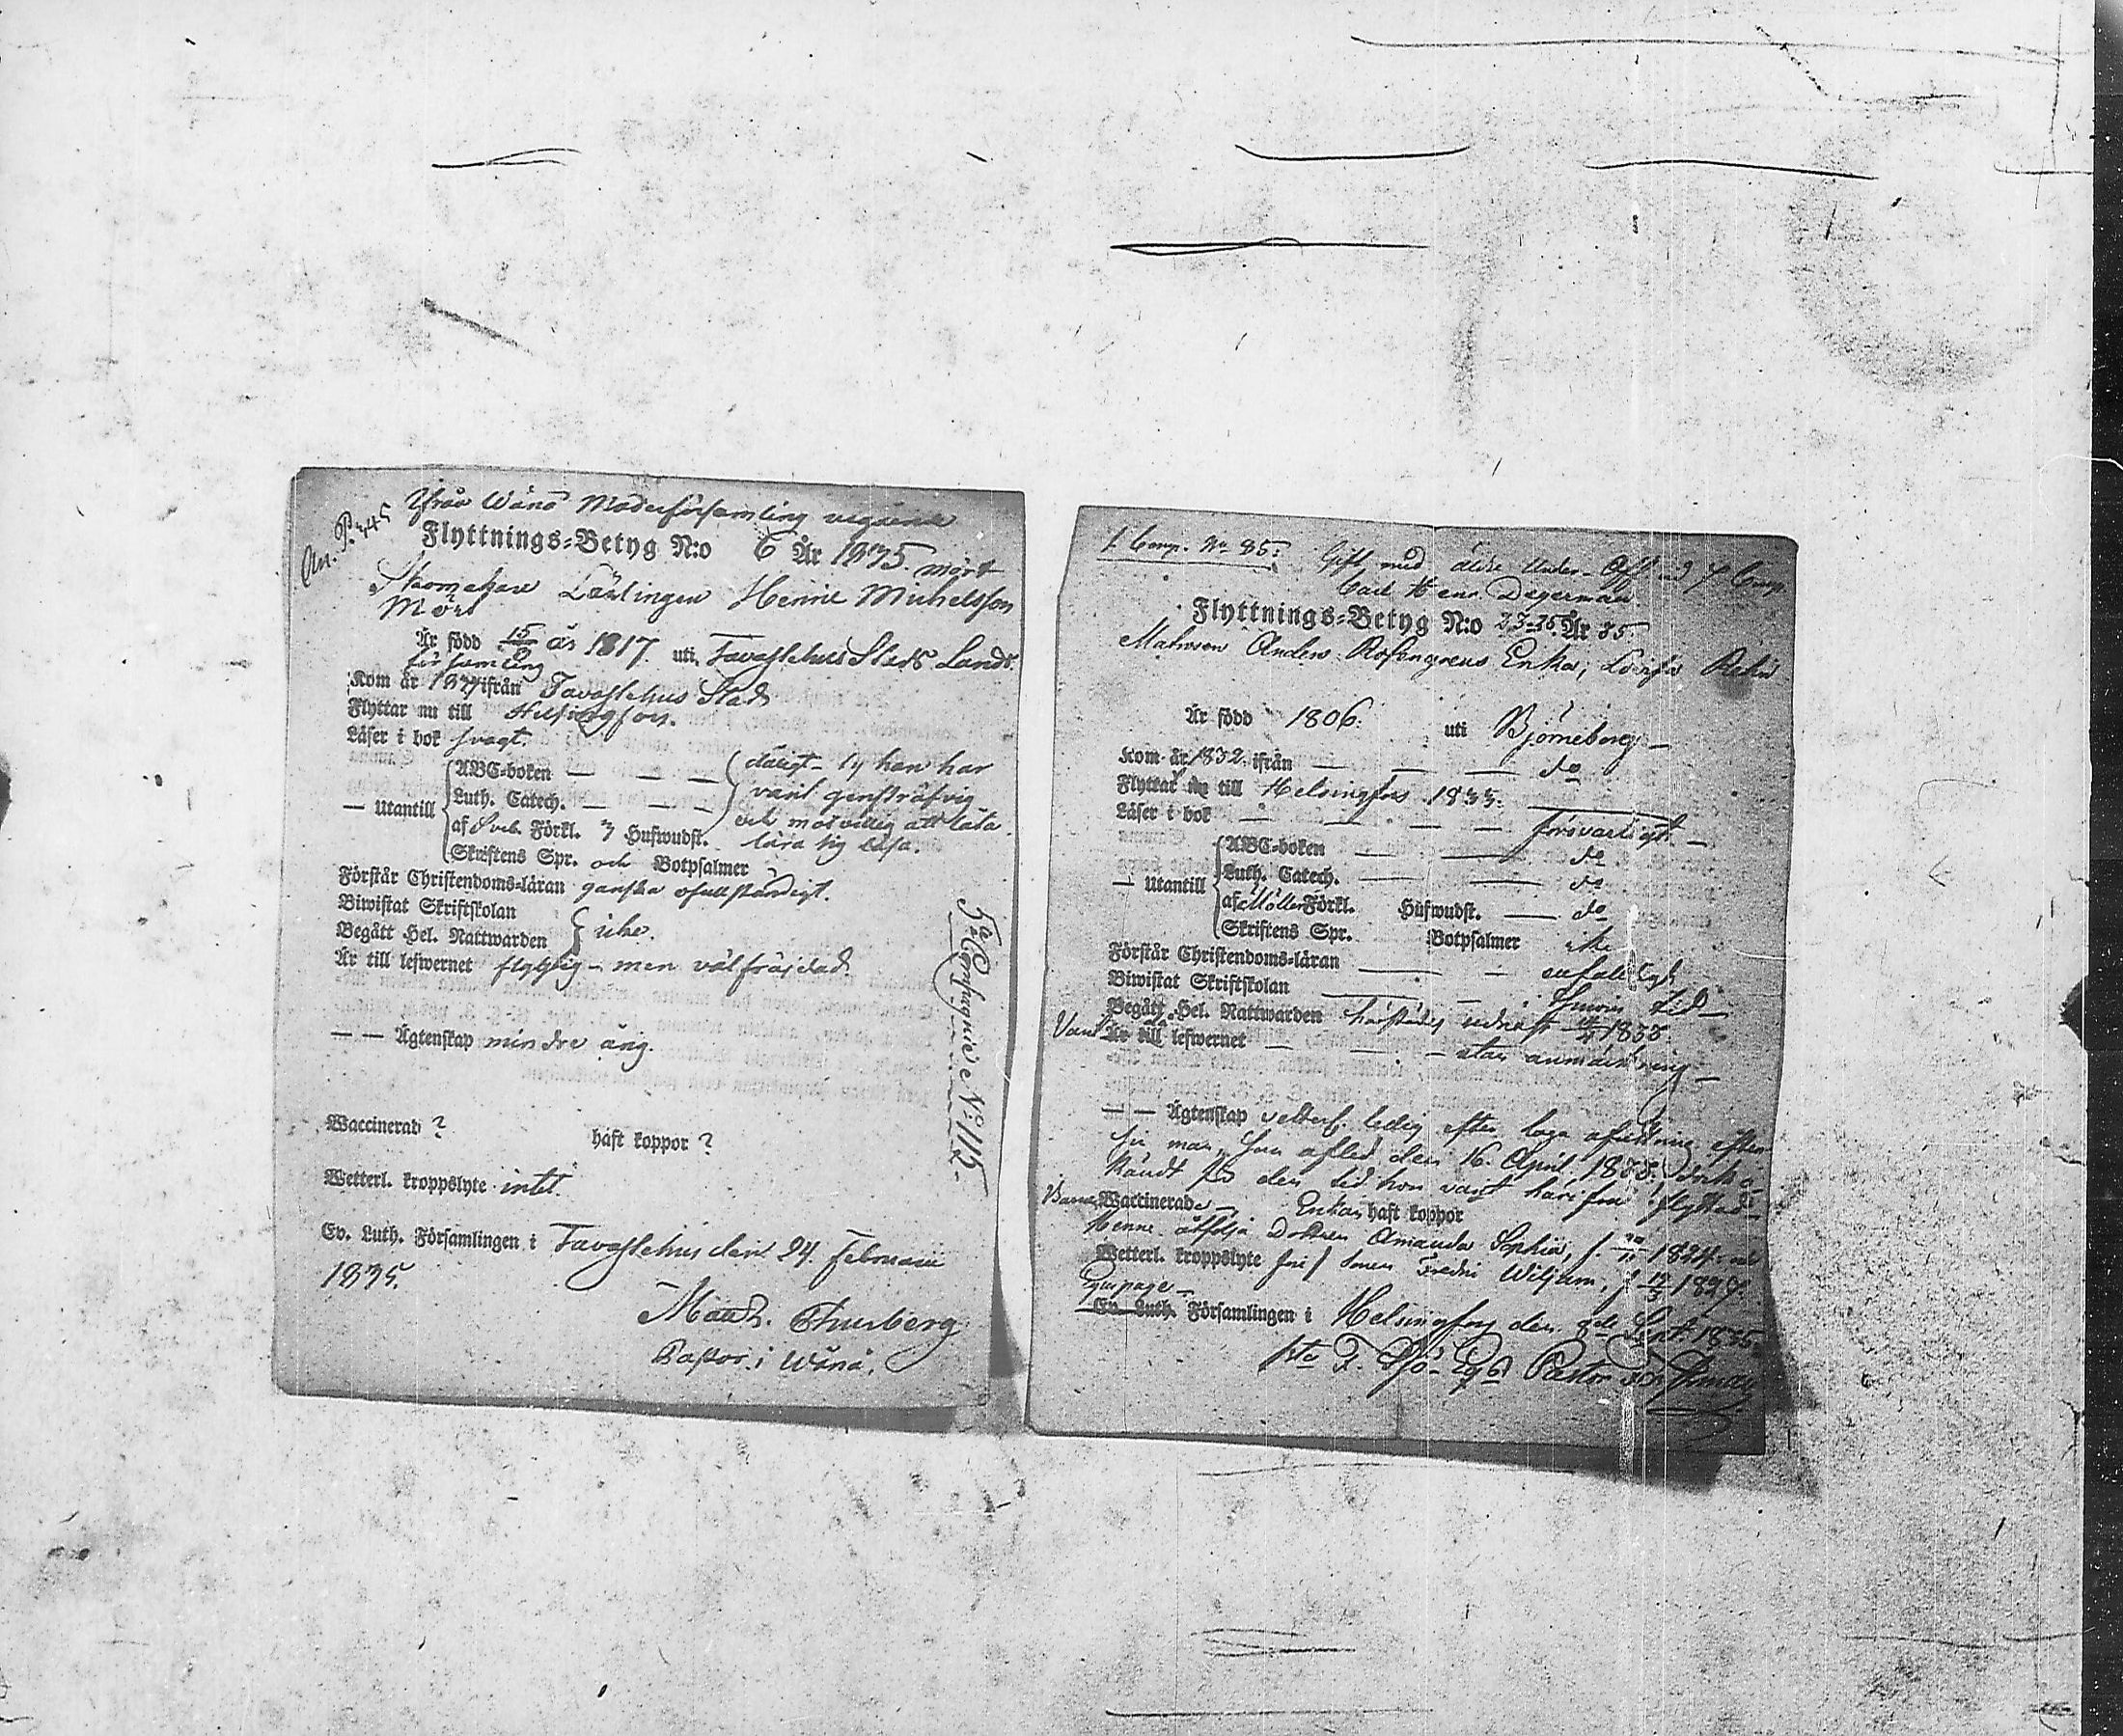 An. P. 345
Ifrån Wånå Moderförsamling utgifne
Flyttnings-Betyg N:o 6 År 1835. mört
Skomakare Lärlingen Henric Michelsson
Mört
Är född 15/9 år 1817. uti Tavastehus Stads Lands
församling
Kom år 1834 ifrån Tavastehus Stad
Flyttar nu till Helsingfors.
Läser i bok svagt.
— Utantill
ABC-boken — — — dåligt — ty han har
Luth. Catech. — — — varit gensträfvig
af Sveb. Förkl. 3 Hufwudst. och motvillig att låta
Skriftens Spr. och Botpsalmer lära sig läsa.
Förstår Christendoms-läran ganska ofullständigt.
Biwistat Skriftskolan
Begått Hel. Nattwarden icke.
Är till lefwernet flygtig — men välfräjdad.
— — Ägtenskap minderårig.
Waccinerad ? haft koppor ?
Wetterl. kroppslyte intet.
Ev. Luth. Församlingen i Tavastehus den 24. Februarii
1835.
Math. Thurberg
Pastor i Wånå.
5te Compagnie N:o 115.
1. Comp. No 85. Gift med äldre Under-Off. vid 7 Comp.
Carl Henr. Degerman
Flyttnings-Betyg N:o 23-35. År 35.
Matrosen Anders Rosengrens Enka, Lovisa
Är född 1806. uti Björneborg —
Kom år 1832. ifrån — — — do
Flyttat till Helsingfors 1833.
Läser i bok — — — — försvarligt. —
— Utantill
ABC-boken — — do
Luth. Catech. — — do
af Möllers Förkl. Hufwudst. — do
Skriftens Spr. Botpsalmer icke
Förstår Christendoms-läran — — enfaldigt
Biwistat Skriftskolan — — i sin tid —
Begått Hel. Nattwarden härstädes sednast 14/4 1833.
Varit till lefwernet — — — utan anmärkning —
— — Ägtenskap vetterl. ledig efter laga afvittring efter
sin man, som afled den 16. April 1833.
den tid hon varit härifrån flyttad —
Barnen Waccinerade —, Enkan haft koppor
Henne åtfölja Dottren Amanda Sophia, f. 1824. och
Wetterl. kroppslyte Sonen Fredric Wiljam, f. 12/3 1829.
Equipage —
Ev. Luth. Församlingen i Helsingfors den 8de Sept. 1835.
1sta F. Sjö- Eqp Pastor